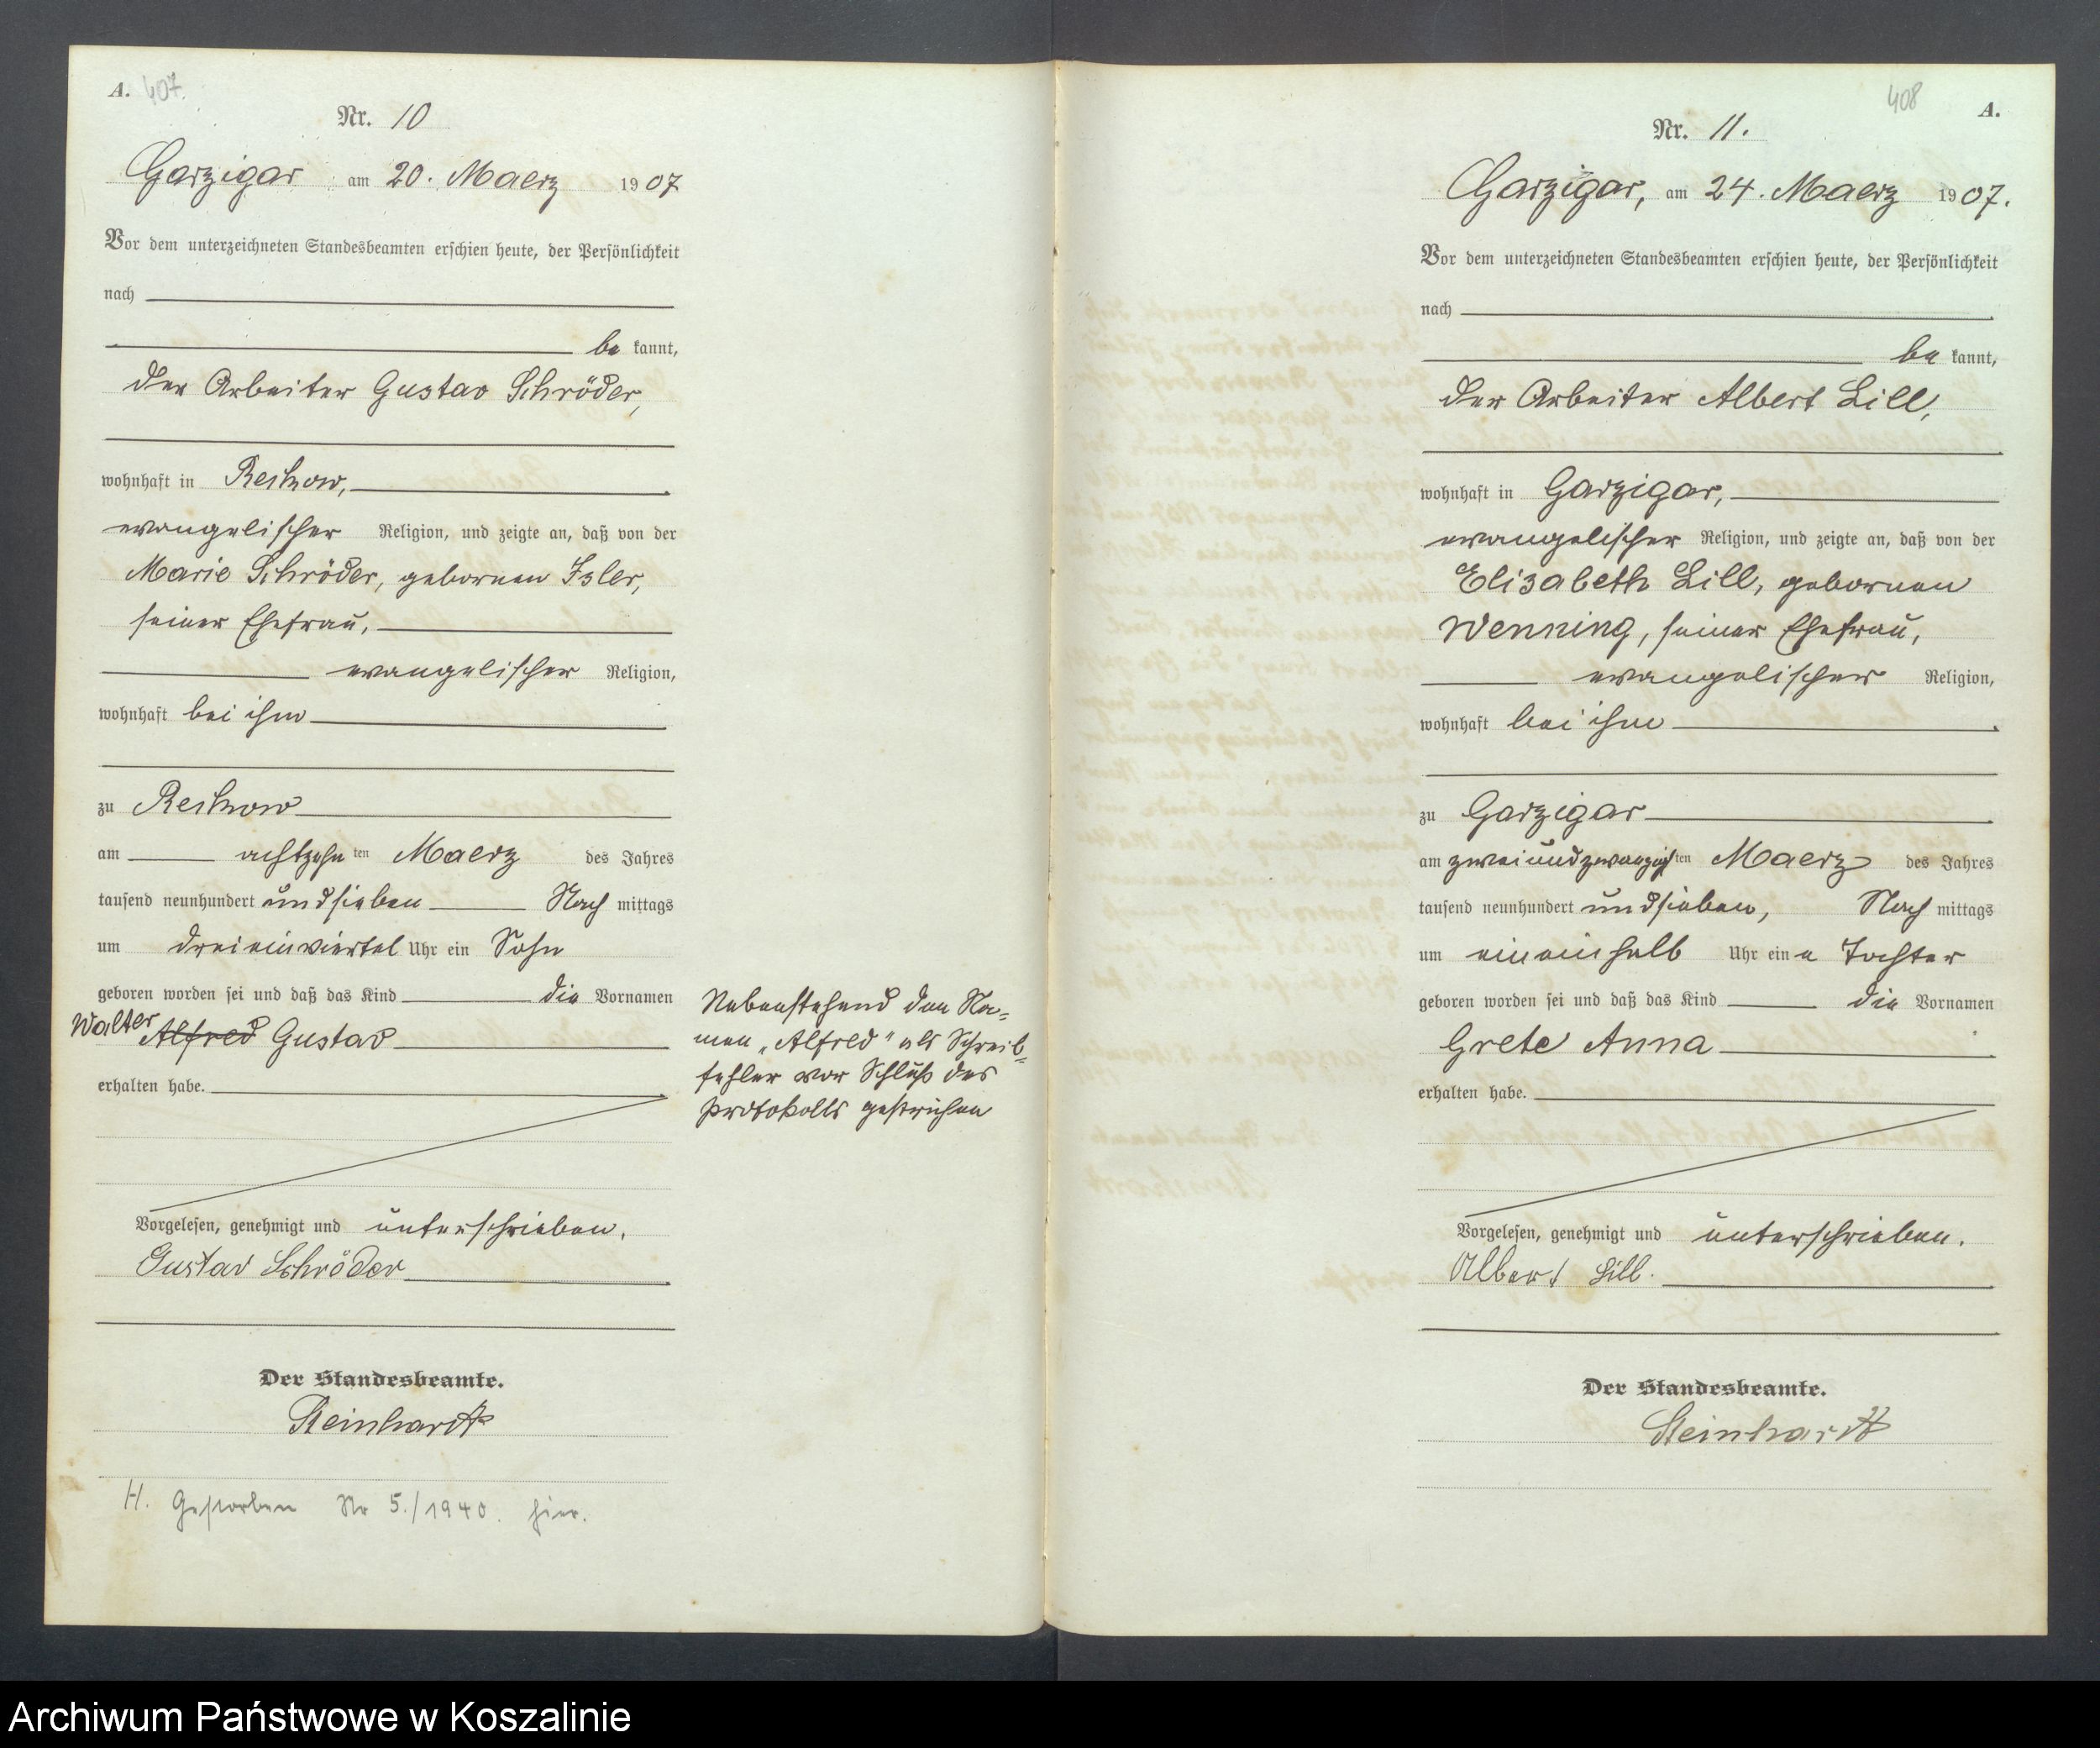 A. 407.
Nr. 10
Garzigar am 20. Maerz 1907
Vor dem unterzeichneten Standesbeamten erschien heute, der Persönlichkeit
nach
be kannt,
der Arbeiter Gustav Schröder,
wohnhaft in Reckow,
evangelischer Religion, und zeigte an, daß von der
Marie Schröder, gebornen Isler,
seiner Ehefrau,
evangelischer Religion,
wohnhaft bei ihm
zu Reckow
am achtzehnten Maerz des Jahres
tausend neunhundert undsieben Nachmittags
um dreieinviertel Uhr ein Sohn
geboren worden sei und daß das Kind die Vornamen
Walter Alfred Gustav
erhalten habe.
Nebenstehend den Na=
men „Alfred" als Schreib=
fehler vor Schluß des
Protokolls gestrichen
Vorgelesen, genehmigt und unterschrieben.
Gustav Schröder
Der Standesbeamte.
Steinhardt
H. Gestorben Nr 5./1940. hier.
408 A.
Nr. 11.
Garzigar, am 24. Maerz 1907.
Vor dem unterzeichneten Standesbeamten erschien heute, der Persönlichkeit
nach
be kannt,
der Arbeiter Albert Lill,
wohnhaft in Garzigar,
evangelischer Religion, und zeigte an, daß von der
Elisabeth Lill, gebornen
Wenning, seiner Ehefrau,
evangelischer Religion,
wohnhaft bei ihm
zu Garzigar
am zweiundzwanzigsten Maerz des Jahres
tausend neunhundert undsieben, Nachmittags
um eineinhalb Uhr eine Tochter
geboren worden sei und daß das Kind die Vornamen
Grete Anna
erhalten habe.
Vorgelesen, genehmigt und unterschrieben.
Albert Lill.
Der Standesbeamte.
Steinhardt
Archiwum Państwowe w Koszalinie